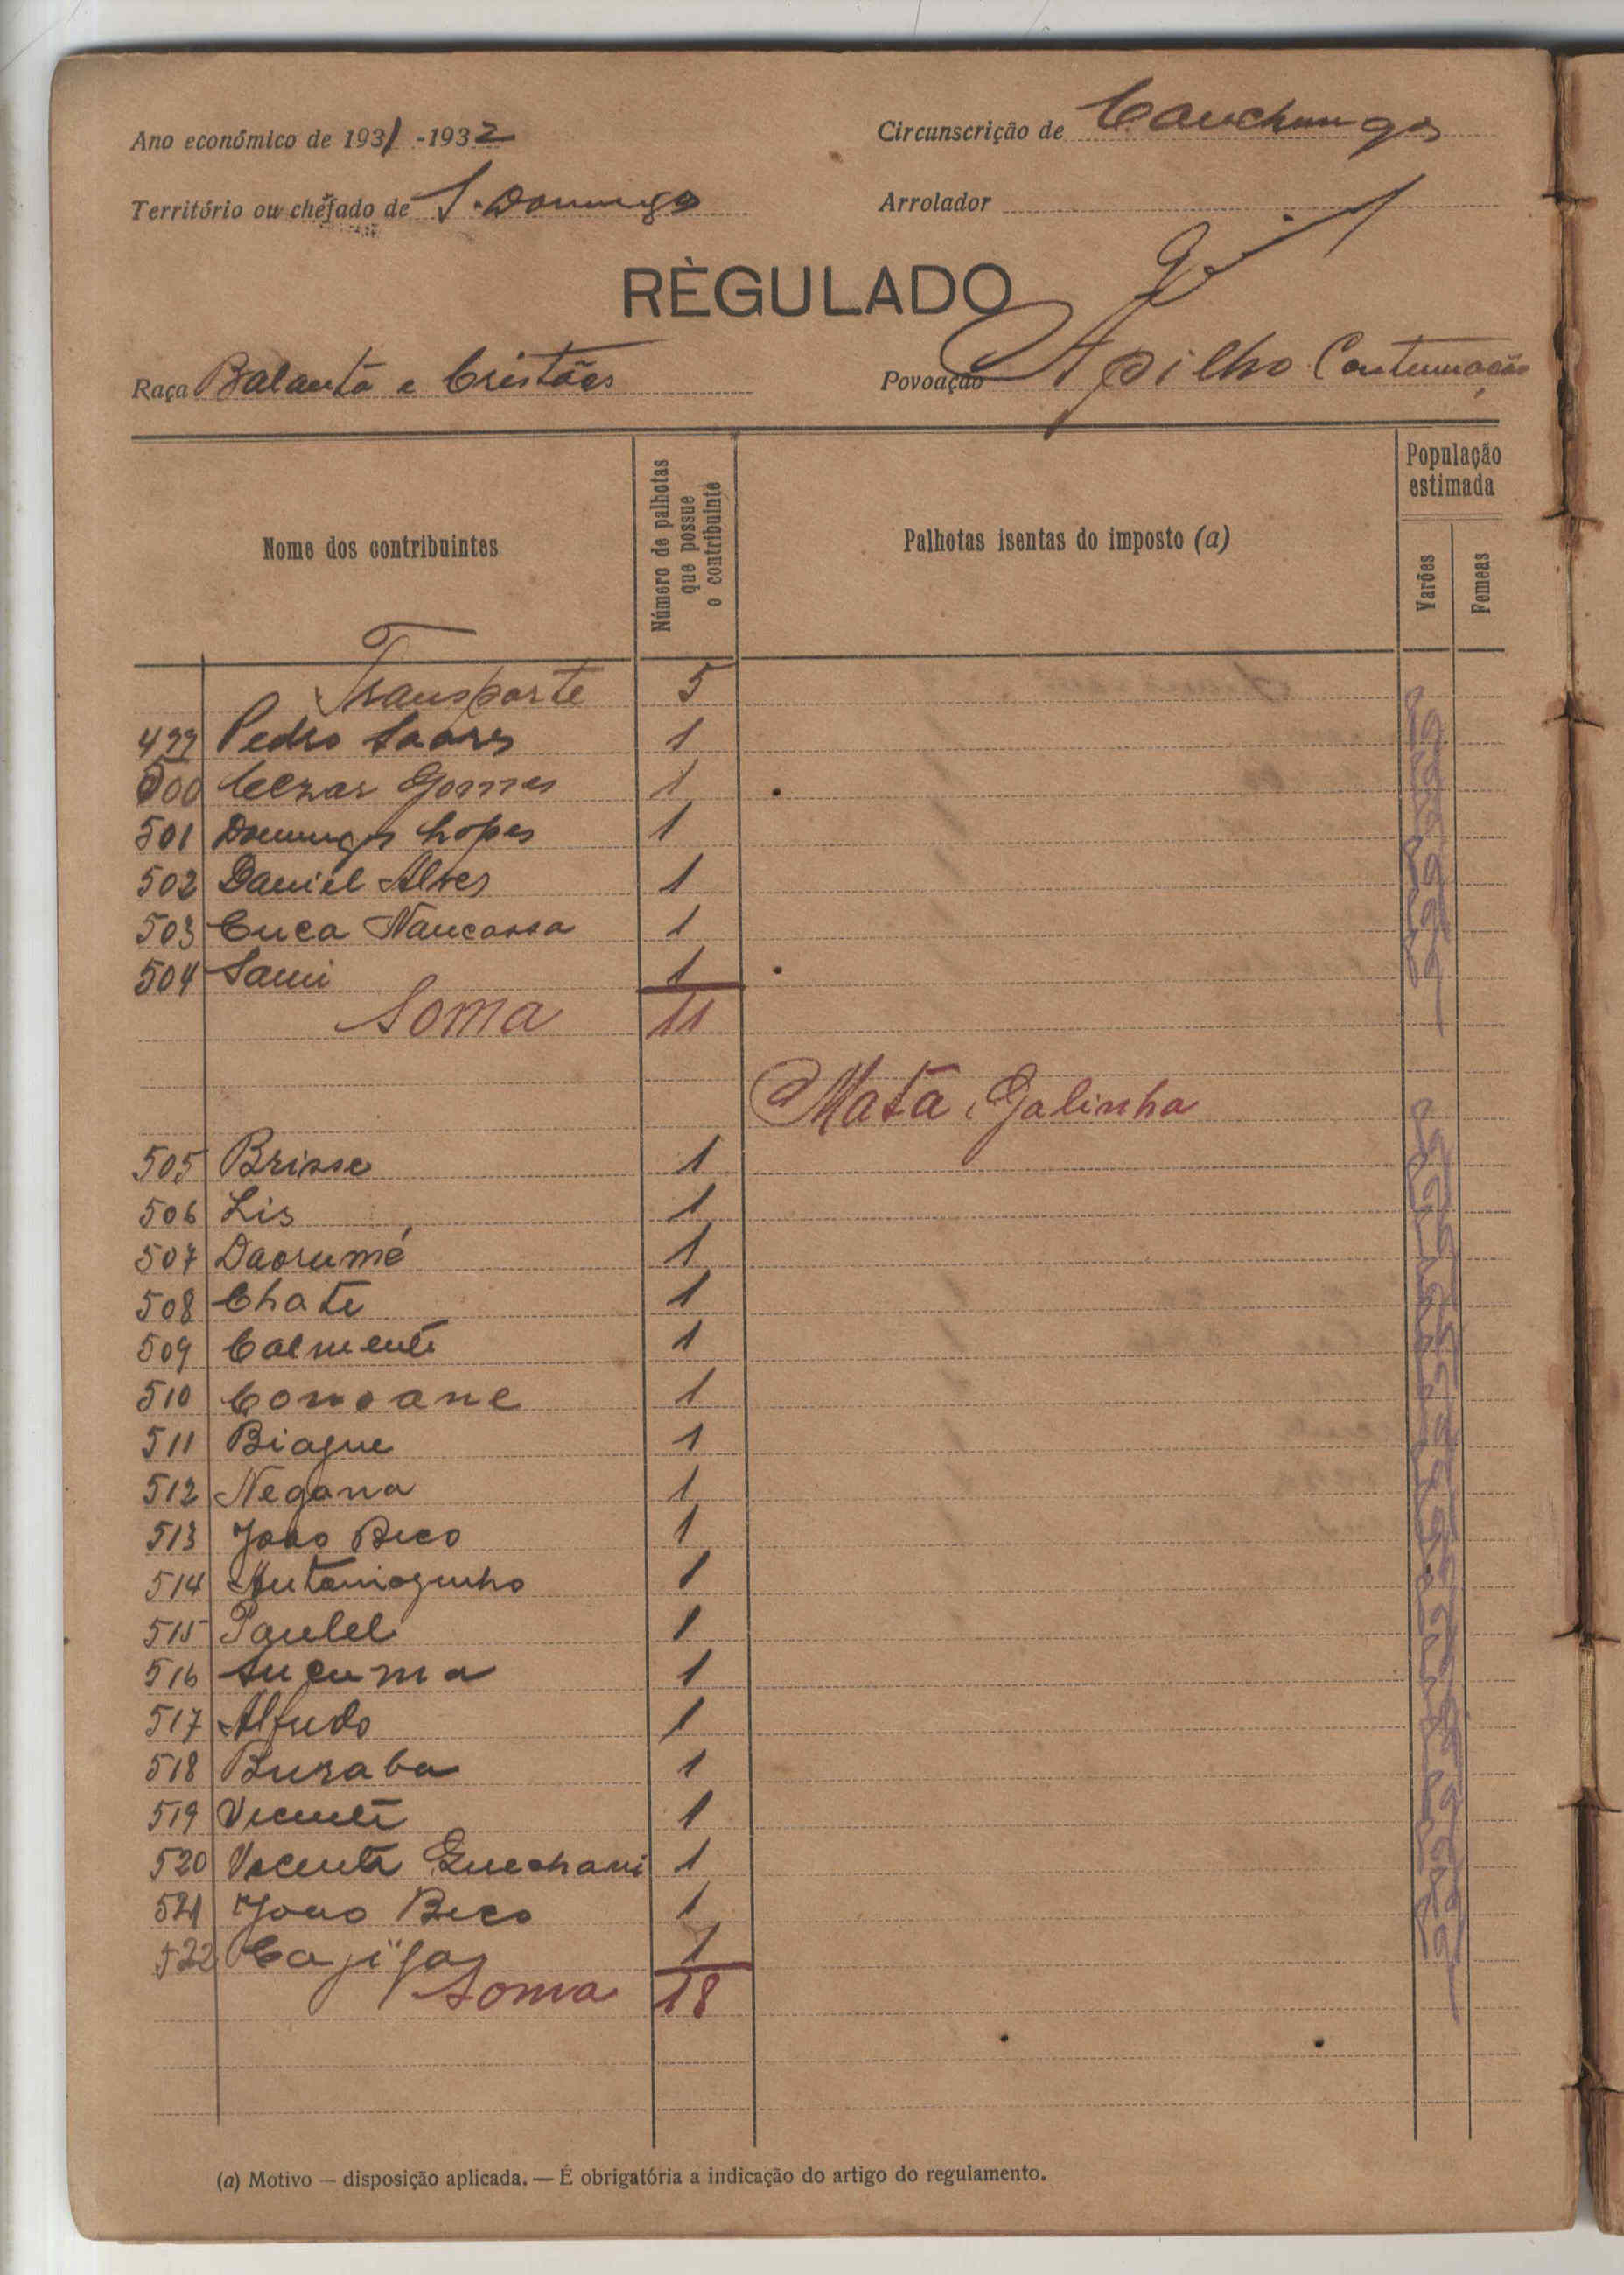 Ano económico de 1931 -1932
Circunscrição de Canchungo
Território ou chefado de S. Domingos
Arrolador
RÈGULADO
Raça Balanta e Cristãos
Povoação Apilho Continuação
Nome dos contribuintes
Número de palhotas que possue o contribuinte
Palhotas isentas do imposto (a)
População estimada
Varões
Femeas
Transporte 5
499 Pedro Soares 1
500 Cezar Gomes 1
501 Domingos Lopes 1
502 Daniel Alves 1
503 Cuca Nancassa 1
504 Sami 1
Soma 11
Mata Galinha
505 Brisse 1
506 Lis 1
507 Daorumé 1
508 Chate 1
509 Calmente 1
510 1
511 Biague 1
512 Negana 1
513 Joao Beco 1
514 Antoniozinho 1
515 Paulel 1
516 Sucuma 1
517 Alfredo 1
518 Buraba 1
519 Vicente 1
520 Vicente 1
521 Joao Beco 1
522 1
Soma 18
(a) Motivo — disposição aplicada. — É obrigatória a indicação do artigo do regulamento.